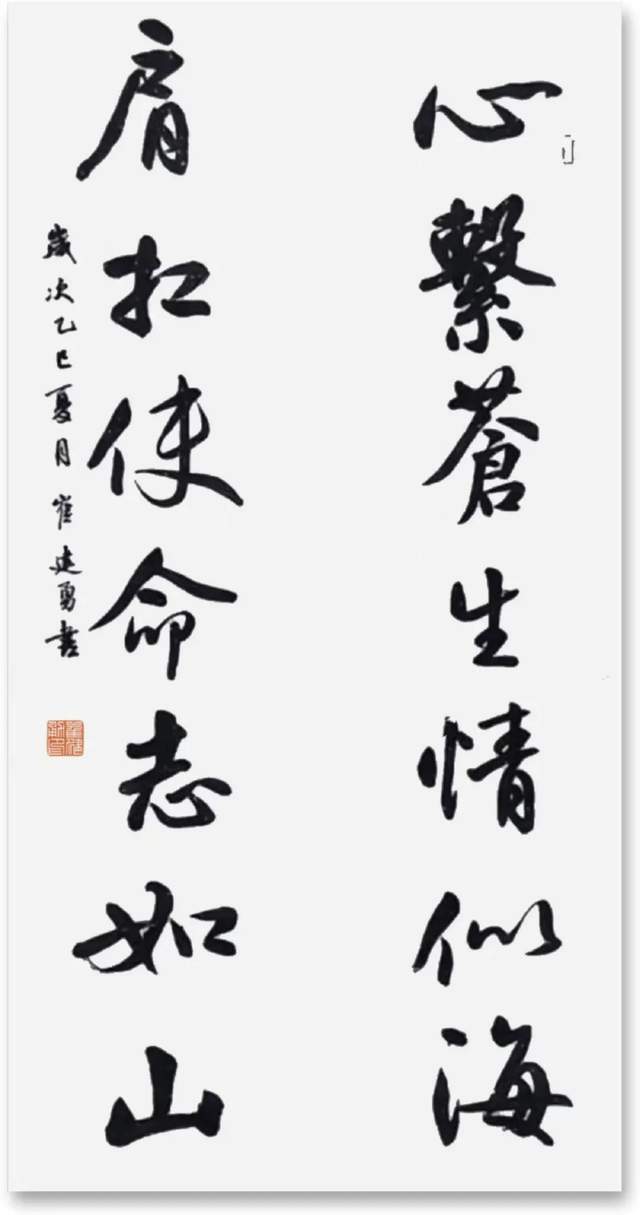 心繫蒼生情似海
肩扛使命志如山
歲次乙巳夏月崔建勇書